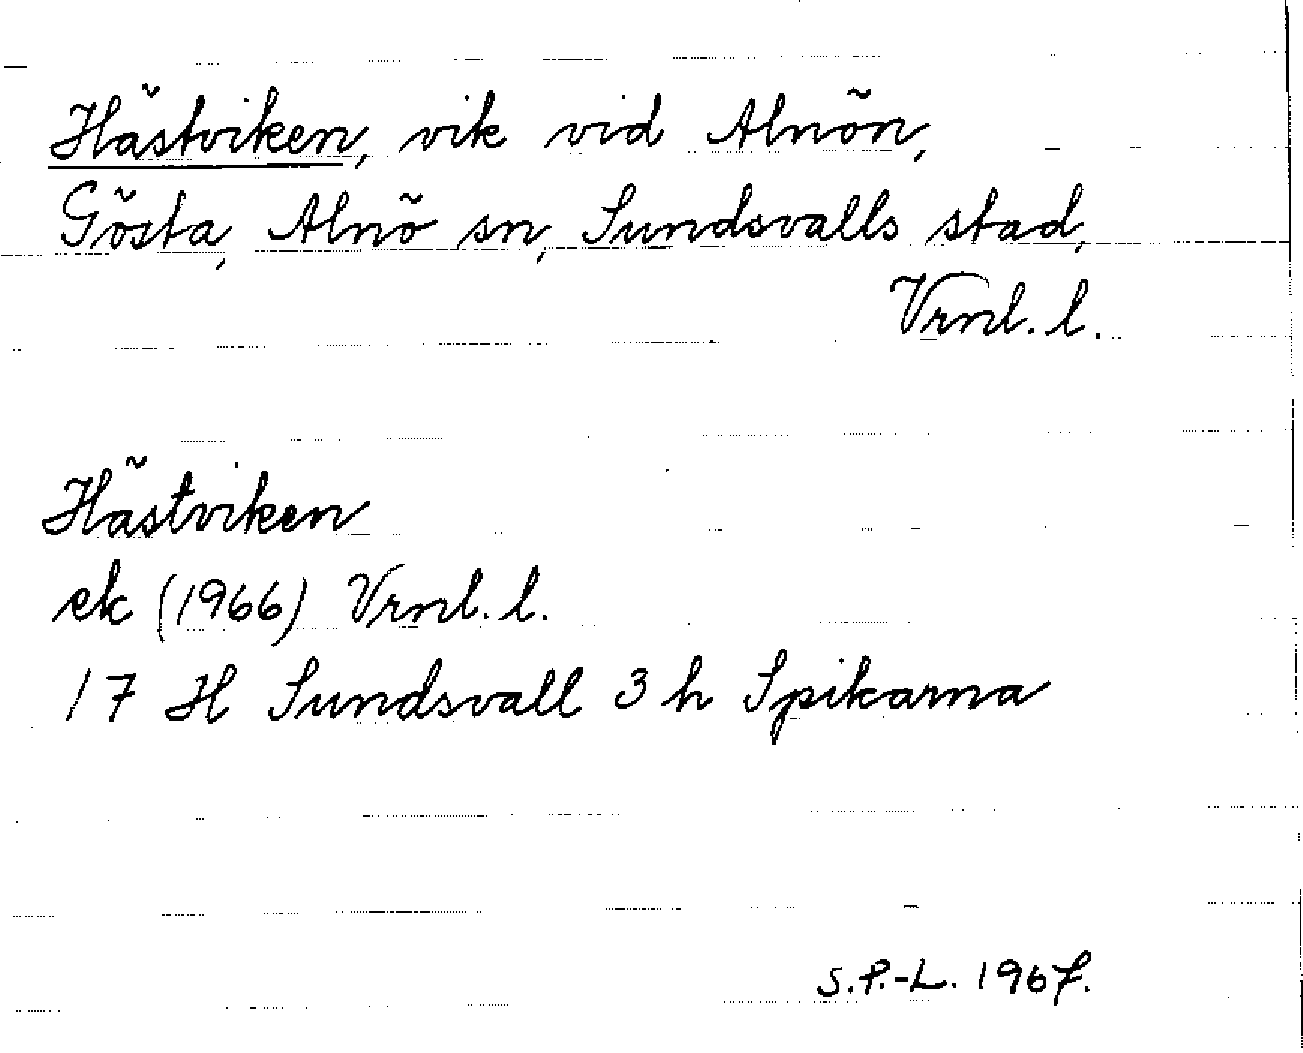 Hästviken, vik vid Alnön,
Gösta, Alnö sn, Sundsvalls stad,
Vrnl. l.
Hästviken
ek (1966) Vrnl. l.
17 H Sundsvall 3 h Spikarna
S.P.-L. 1967.